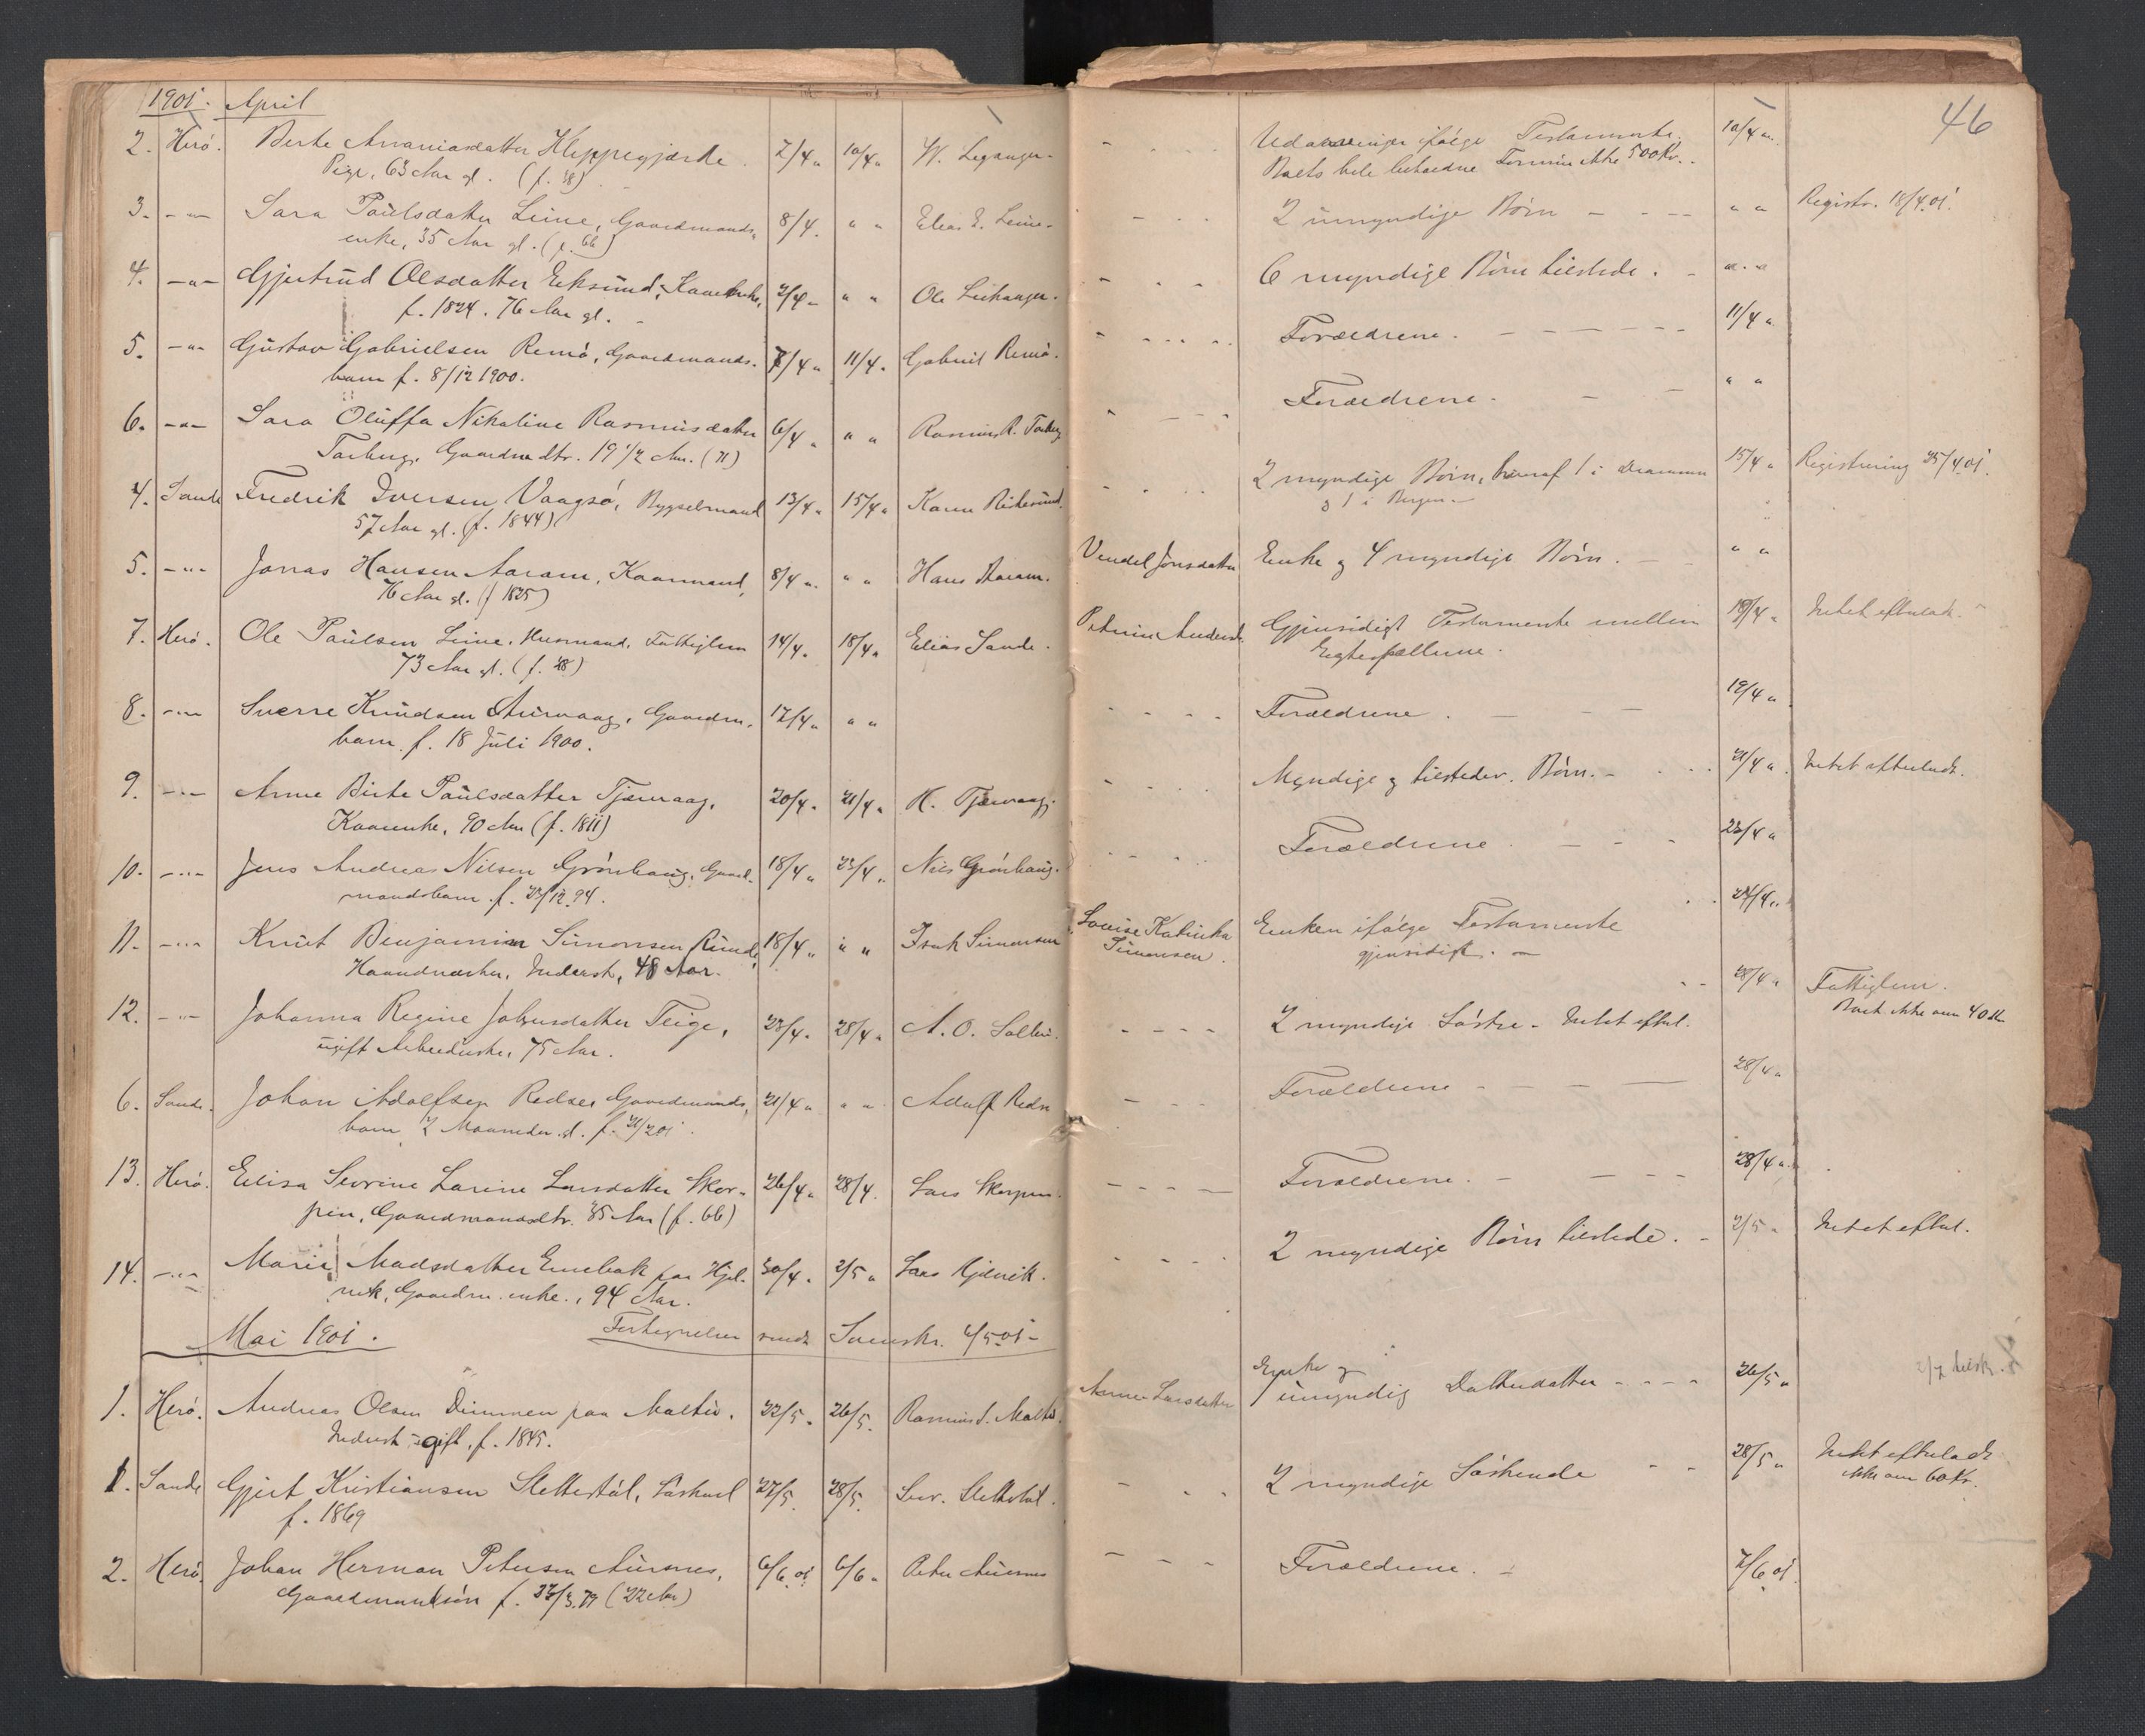 1901. April
2. Herö. Berte Ananiasdatter Kleppegjærde. 7/4 " 10/4 " W. Leganger.
Pige, 63 Aar gl. (f. 38)
3. - " - Sara Paulsdatter Leine, Gaardmands- 8/4. " " Elias E. Leine.
enke, 35 Aar gl. (f. 66)
4. - " - Gjertrud Olsdatter Eiksund, Kaarenke, 2/4 " " " Ole Leikanger.
f. 1824. 76 Aar gl.
5. - " - Gustav Gabrielsen Remö, Gaardmands- 7/4 " 11/4 " Gabriel Remö.
barn f. 8/12 1900.
6. - " - Sara Oluffa Nikoline Rasmusdatter 6/4 " " " Rasmus R. Tarberg
Tarberg, Gaardm dtr. 19 1/2 Aar.
4. Sande Fredrik Iversen Vaagsö, Bygselmand 13/4 " 15/4 " Karen
57 Aar gl. (f. 1844)
5. - " - Jonas Hansen Aaram, Kaarmand, 8/4 " " " Hans Aaram.
76 Aar gl. (f 1825)
7. Herö. Ole Paulsen Leine, Husmand, Fattiglem 14/4. 18/4 " Elias Sande.
73 Aar gl. (f. 28)
8. - " - Sverre Knudsen Aurvaag, Gaardm. 17/4 " " "
barn. f. 18 Juli 1900.
9. - " - Anne Birte Paulsdatter Tjærvaag, 20/4. 21/4 " K. Tjærvaag.
Kaarenke, 90 Aar (f. 1811)
10. - " - Jens Andreas Nilsen Grönhaug, Gaard- 18/4 " 23/4 " Nils Grönhaug.
mandsbarn. f. 12.94.
11. - " - Knut Benjamin Simonsen Runde, 18/4 " " " Isak Simonsen
Haandværker, Inderst, 48 Aar.
12. - " - Johanna Regine Jakobsdatter Teige, 23/4. 28/4 " A. O.
ugift Arbeiderske, 75 Aar.
6. Sande. Johan Adolfsen Gaardmands- 21/4 " " " Adolf
barn, 2 Maaneder gl. f. 21/2 01.
13. Herö. Elisa Severine Larine Larsdatter Skor- 26/4 " 28/4. Lars Skorpen.
pen, Gaardmandsdtr. 35 Aar (f. 66)
14. - " - Marie Madsdatter Enebak paa Kjel- 30/4. 2/5 " Lars Kjelvik.
vik, Gaardm. enke., 94 Aar.
Mai 1901. Fortegnelsen sendt Sorenskr. 4/5 01 -
1. Herö. Andreas Olsen Dimmen paa Moltu. 22/5. 26/5. Rasmus J. Moltu.
Inderst gift, f. 1845.
1. Sande Gjert Kristiansen Slettestöl, Löskarl 27/5. 28/5. Sev. Slettestöl.
f. 1869
2. Herö. Johan Herman Petersen Aurenes, 6/6.01 6/6 " Peter Aurenes
Gaardmandssön f. 27/3.79 (22 Aar)
46
Udarvinger ifölge Testamente. 10/4 "
Boets hele beholdne Formue ikke 500 Kr.
2 umyndige Börn - - - " " Registr. 18/4.01.
6 myndige Börn tilstede. - " - "
Forældrene. - - - 11/4 "
Forældrene. - - " "
2 myndige Börn, hvoraf 1 i Drammen 15/4 " Registrering 25/4 01.
og 1 i Bergen.
Vendel Jonsdatter Enke og 4 myndige Börn. - - " "
Petrine Andersd. Gjensidigt Testamente mellem 18/4 " Intet efterladt.
Ægtefællerne.
Forældrene. - - - 19/4 "
Myndige og tilstedev. Börn. - 21/4 " Intet efterladt.
Forældrene. - - - 23/4 "
Louise Katinka Enken ifölge Testamente 24/4 "
Simonsen. gjensidigt. -
2 myndige Söstre - Intet efterl. 28/4 " Fattiglem.
Boet ikke over 40 Kr
Forældrene - - - 28/4 "
Forældrene. - - - 28/4 "
2 myndige Börn tilstede. - 2/5 " Intet efterl.
Anne Larsdatter Enke og
1 umyndig Datterdatter - - - 26/5 "
2 myndige Söskende - - 28/5 " Intet efterladt
ikke over 60 Kr.
Forældrene. - 7/6 01.